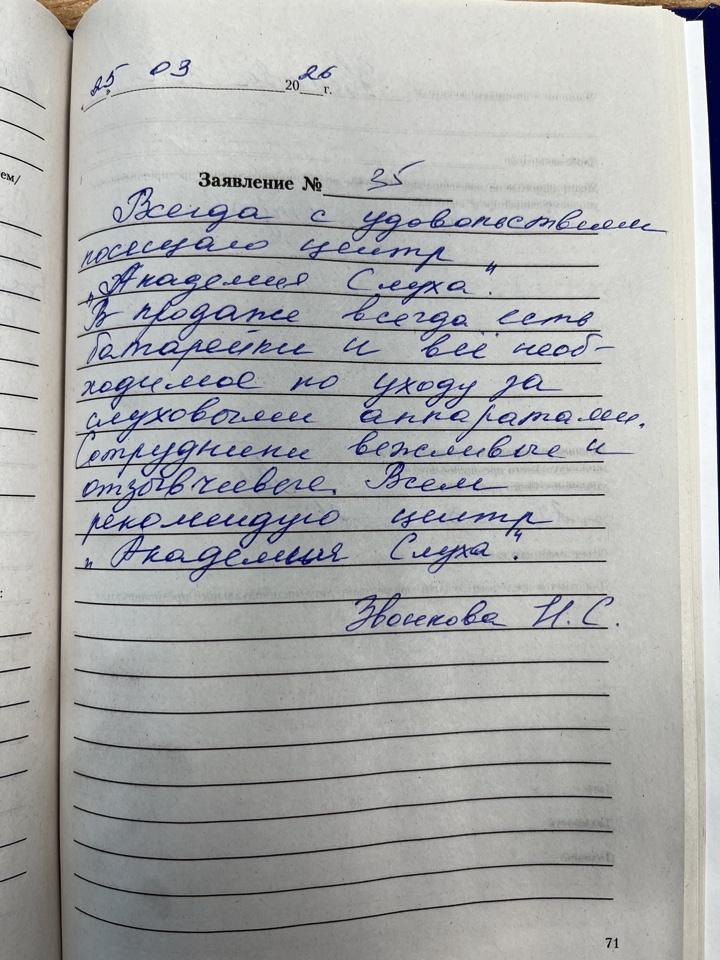 25 03 2026 г.
Заявление № 35
Всегда с удовольствием
посещаю центр
"Академия Слуха".
В продаже всегда есть
батарейки и всё необ-
ходимое по уходу за
слуховыми аппаратами.
Сотрудники вежливые и
отзывчивые. Всем
рекомендую центр
"Академия Слуха".
Звонкова Н. С.
71
ем/
: